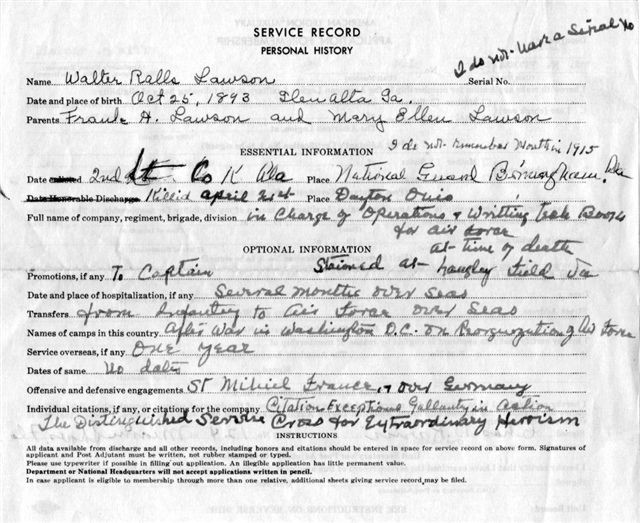 SERVICE RECORD
PERSONAL HISTORY
I do not have a Serial No
Name Walter Ralls Lawson Serial No.
Date and place of birth Oct 25, 1893 Glen Alta Ga.
Parents Frank H. Lawson and Mary Ellen Lawson
ESSENTIAL INFORMATION I do not remember Month in 1915
Date enlisted 2nd Lt. Co K Ala Place National Guard Birmingham, Ala
Date Honorable Discharge Killed april 21st Place Dayton Ohio
Full name of company, regiment, brigade, division in Charge of Operations & Writting Books
for air Force
at time of death
OPTIONAL INFORMATION
Promotions, if any To Captain Stationed at Langley Field Va
Date and place of hospitalization, if any Several months over seas
Transfers from Infantry to Air Force over Seas
Names of camps in this country After War in Washington D.C. on Reorganization of Air Force
Service overseas, if any One year
Dates of same No dates
Offensive and defensive engagements St Mihiel France, & over Germany
Individual citations, if any, or citations for the company Citation Exceptional Gallantry in Action
The Distinguished Service Cross for Extraordinary Heroism
INSTRUCTIONS
All data available from discharge and all other records, including honors and citations should be entered in space for service record on above form. Signatures of
applicant and Post Adjutant must be written, not rubber stamped or typed.
Please use typewriter if possible in filling out application. An illegible application has little permanent value.
Department or National Headquarters will not accept applications written in pencil.
In case applicant is eligible to membership through more than one relative, additional sheets giving service record may be filed.